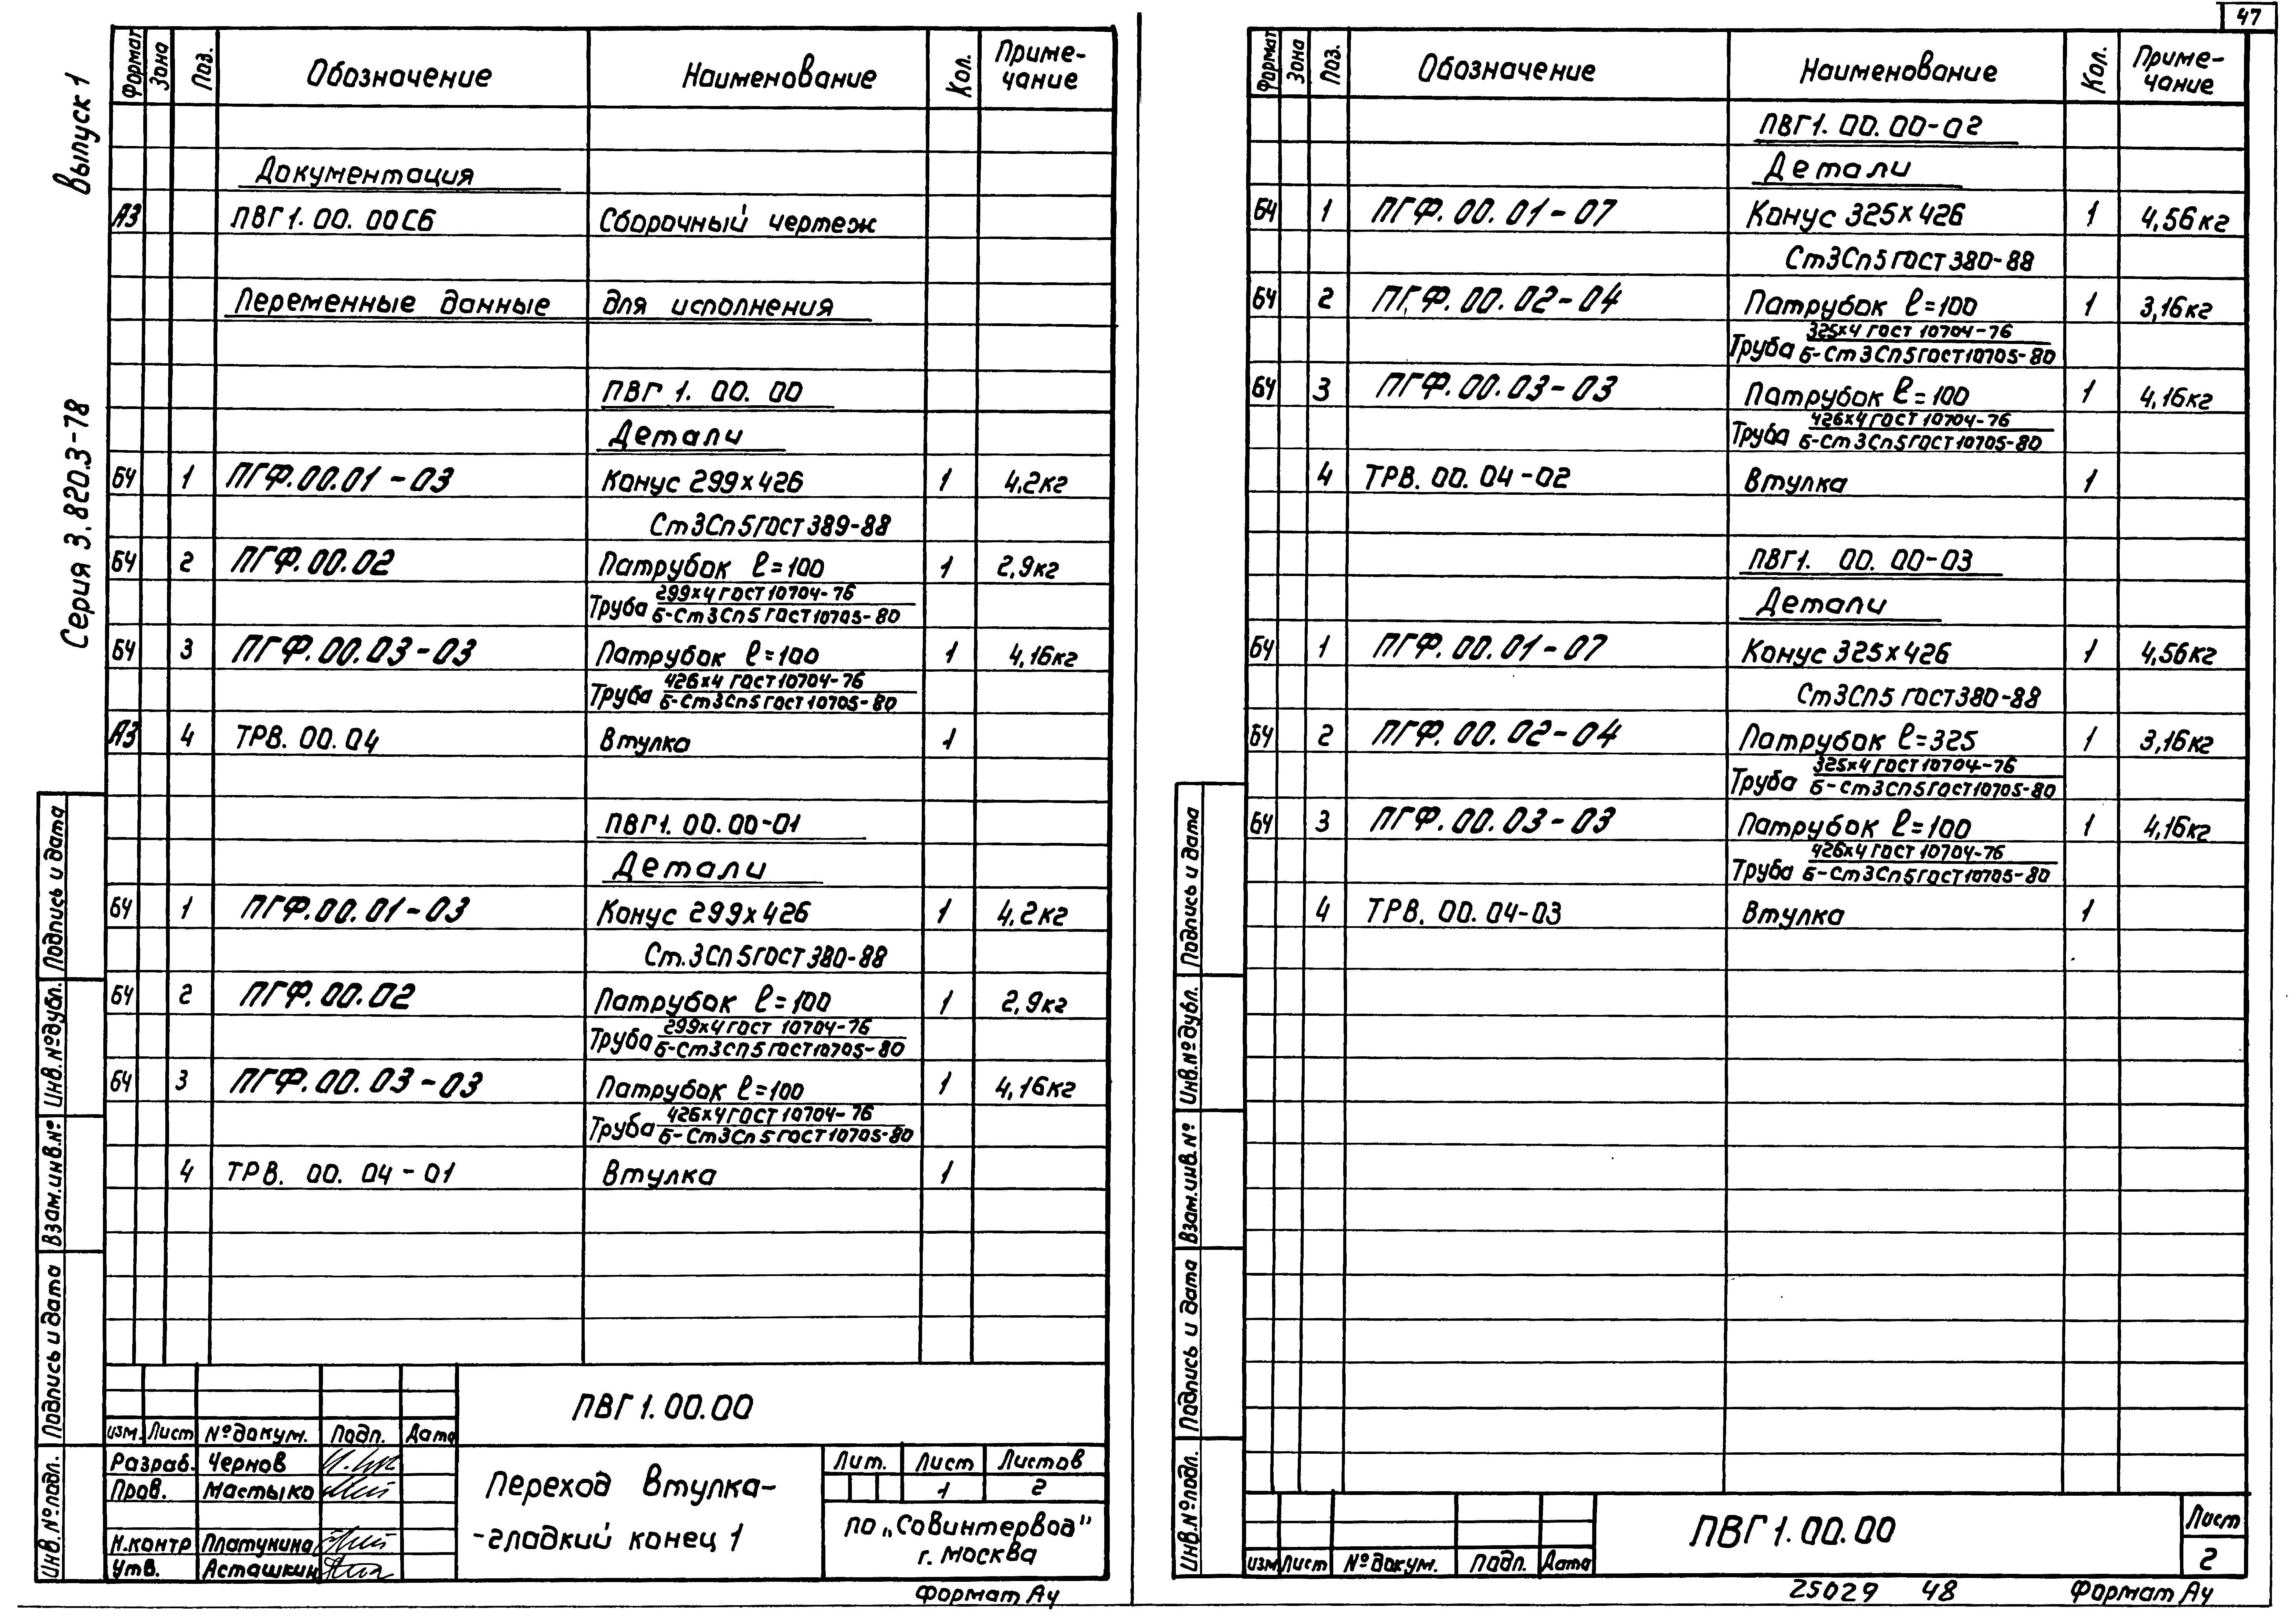 47
Серия 3.820.3-78 Выпуск 1
Формат Зона Поз. Обозначение Наименование Кол. Приме-
чание
Документация
А3 ПВГ1.00.00СБ Сборочный чертеж
Переменные данные для исполнения
ПВГ 1.00.00
Детали
БЧ 1 ПГФ.00.01-03 Конус 299х426 1 4,2кг
Ст3Сп5 ГОСТ 389-88
БЧ 2 ПГФ.00.02 Патрубок ℓ=100 1 2,9кг
299х4 ГОСТ 10704-76
Труба Б-Ст3Сп5 ГОСТ 10705-80
БЧ 3 ПГФ.00.03-03 Патрубок ℓ=100 1 4,16кг
426х4 ГОСТ 10704-76
Труба Б-Ст3Сп5 ГОСТ 10705-80
А3 4 ТРВ.00.04 Втулка 1
ПВГ1.00.00-01
Детали
БЧ 1 ПГФ.00.01-03 Конус 299х426 1 4,2кг
Ст.3Сп5 ГОСТ 380-88
БЧ 2 ПГФ.00.02 Патрубок ℓ=100 1 2,9кг
299х4 ГОСТ 10704-76
Труба Б-Ст3Сп5 ГОСТ 10705-80
БЧ 3 ПГФ.00.03-03 Патрубок ℓ=100 1 4,16кг
426х4 ГОСТ 10704-76
Труба Б-Ст3Сп5 ГОСТ 10705-80
4 ТРВ.00.04-01 Втулка 1
Инв.№подл. Подпись и дата Взам.инв.№ Инв.№дубл. Подпись и дата
ПВГ1.00.00
изм. Лист №докум. Подп. Дата
Разраб. Чернов
Пров. Мастыко
Н.контр Платунина
Утв. Асташкин
Переход Втулка-
-гладкий конец 1
Лит. Лист Листов
1 2
ПО „Совинтервод"
г. Москва
Формат А4
Формат Зона Поз. Обозначение Наименование Кол. Приме-
чание
ПВГ1.00.00-02
Детали
БЧ 1 ПГФ.00.01-07 Конус 325х426 1 4,56кг
Ст3Сп5 ГОСТ 380-88
БЧ 2 ПГ.Ф.00.02-04 Патрубок ℓ=100 1 3,16кг
325х4 ГОСТ 10704-76
Труба Б-Ст3Сп5 ГОСТ 10705-80
БЧ 3 ПГФ.00.03-03 Патрубок ℓ=100 1 4,16кг
426х4 ГОСТ 10704-76
Труба Б-Ст3Сп5 ГОСТ 10705-80
4 ТРВ.00.04-02 Втулка 1
ПВГ1.00.00-03
Детали
БЧ 1 ПГФ.00.01-07 Конус 325х426 1 4,56кг
Ст3Сп5 ГОСТ 380-88
БЧ 2 ПГФ.00.02-04 Патрубок ℓ=325 1 3,16кг
325х4 ГОСТ 10704-76
Труба Б-Ст3Сп5 ГОСТ 10705-80
БЧ 3 ПГФ.00.03-03 Патрубок ℓ=100 1 4,16кг
426х4 ГОСТ 10704-76
Труба Б-Ст3Сп5 ГОСТ 10705-80
4 ТРВ.00.04-03 Втулка 1
Инв.№подл. Подпись и дата Взам.инв.№ Инв.№дубл. Подпись и дата
изм Лист №докум. Подп. Дата
ПВГ1.00.00
Лист
2
25029 48 Формат А4